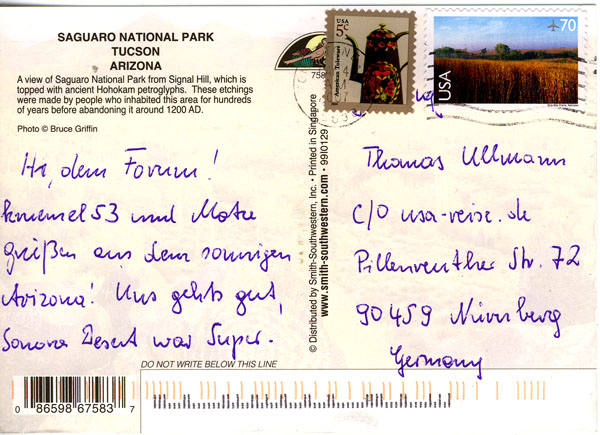 SAGUARO NATIONAL PARK
TUCSON
ARIZONA
A view of Saguaro National Park from Signal Hill, which is
topped with ancient Hohokam petroglyphs. These etchings
were made by people who inhabited this area for hundreds
of years before abandoning it around 1200 AD.
Photo © Bruce Griffin
Hi, dem Forum!
53 und
grüßen aus dem sonnigen
Arizona! Uns gehts gut,
Sonora Desert war Super.
DO NOT WRITE BELOW THIS LINE
0 86598 67583 7
© Distributed by Smith-Southwestern, Inc. • Printed in Singapore
www.smith-southwestern.com • 9901291
USA
5c
American Toleware
70
USA
Thomas Ullmann
C/O usa-reise.de
Pillenreuther Str. 72
90459 Nürnberg
Germany